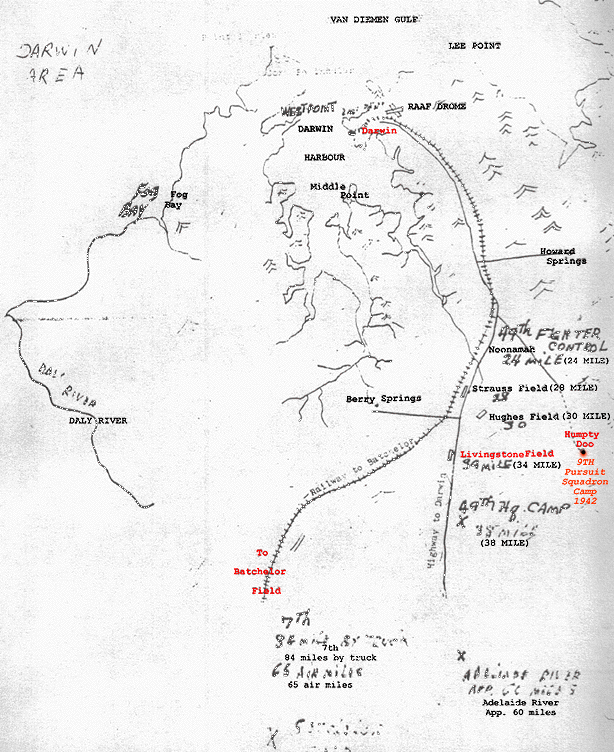 VAN DIEMEN GULF
LEE POINT
DARWIN
AREA
WESTPOINT
RAAF DROME
DARWIN
Darwin
HARBOUR
Middle
Point
FOG
BAY
Fog
Bay
Howard
Springs
49th FIGHTER
CONTROL
Noonamah
24 MILE (24 MILE)
DALY RIVER
DALY RIVER
Strauss Field (28 MILE)
28
Berry Springs
Hughes Field (30 MILE)
30
Humpty
Doo
Livingstone Field
34 MILE (34 MILE)
9TH
Pursuit
Squadron
Camp
1942
Railway to Batchelor
Highway to Darwin
49th Hq. CAMP
X 38 MILE
(38 MILE)
To
Batchelor
Field
7th
84 MILE BY TRUCK
7th
84 miles by truck
65 AIR MILES
65 air miles
X
ADELAIDE RIVER
APP. 60 MILES
Adelaide River
App. 60 miles
X